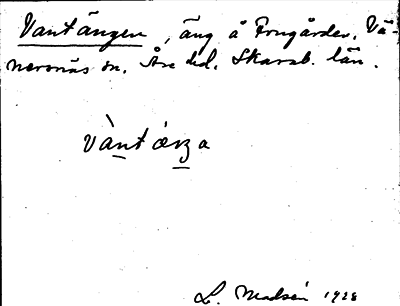 Vantängen, äng å Frugården, Vä-
nersnäs sn. Åse hd. Skarab. län.
vàntǽŋa
L. 1928